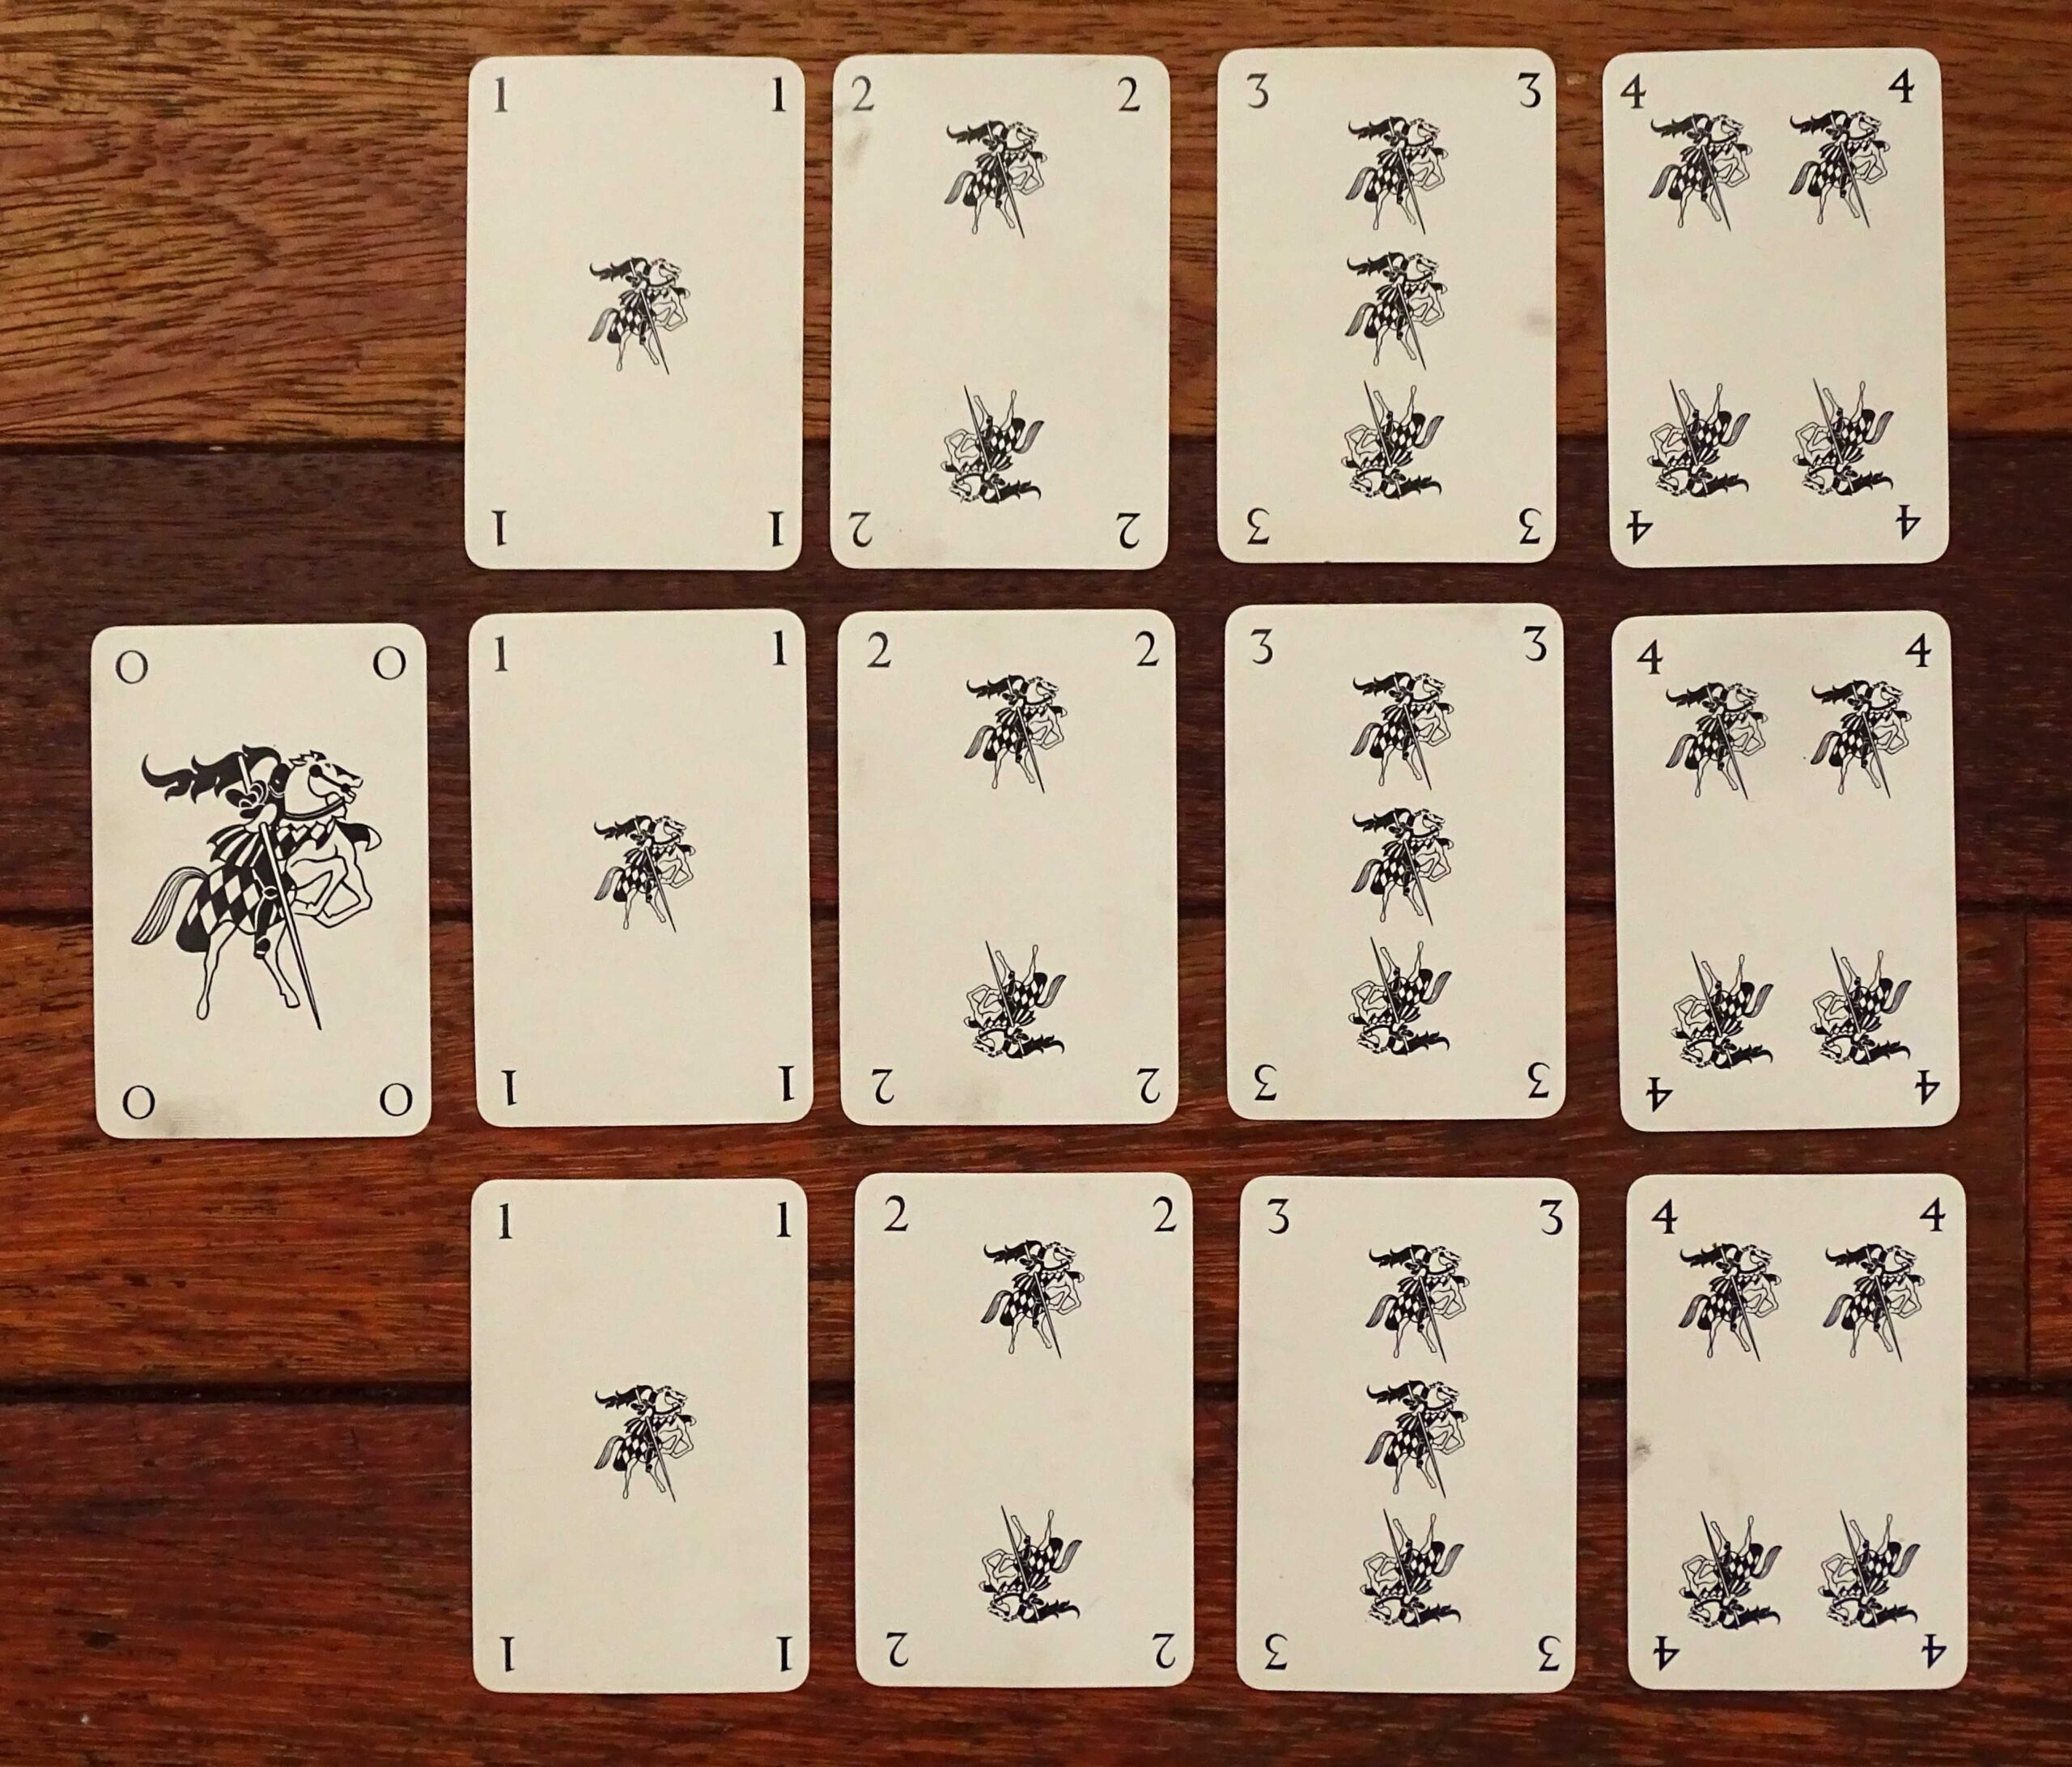 1 1
1 1
2 2
2 2
3 3
3 3
4 4
4 4
0 0
0 0
1 1
1 1
2 2
2 2
3 3
3 3
4 4
4 4
1 1
1 1
2 2
2 2
3 3
3 3
4 4
4 4